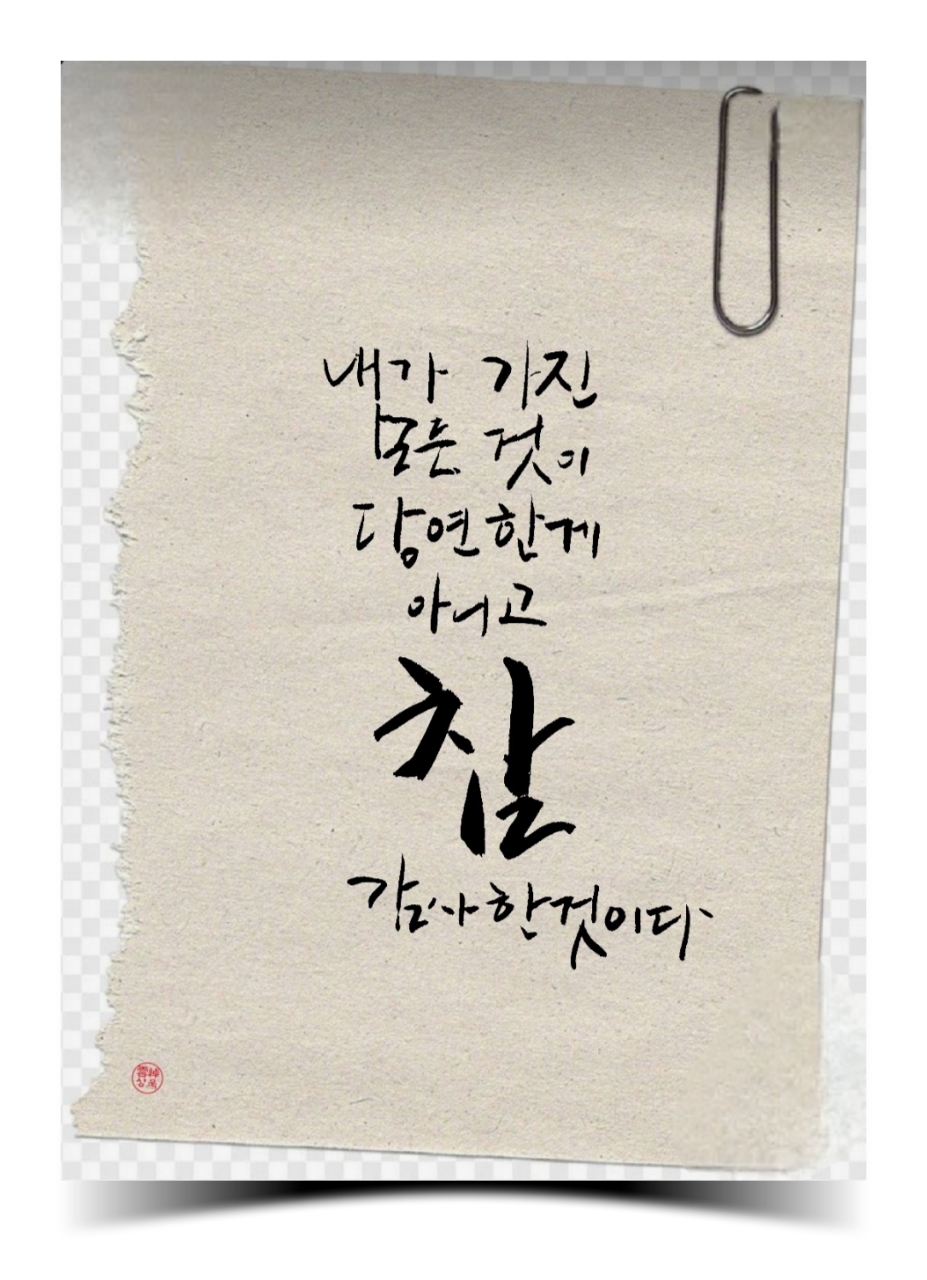 내가 가진
모든 것이
당연한게
아니고
참
감사한것이다